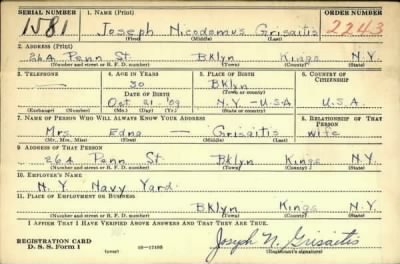 SERIAL NUMBER 1. NAME (Print) ORDER NUMBER
1581 Joseph Nicodemus Grisaitis 2243
(First) (Middle) (Last)
2. ADDRESS (Print)
264 Penn St. Bklyn Kings N.Y.
(Number and street or R. F. D. number) (Town) (County) (State)
3. TELEPHONE 4. AGE IN YEARS 5. PLACE OF BIRTH 6. COUNTRY OF CITIZENSHIP
— 30 Bklyn
DATE OF BIRTH (Town or county)
Oct 21 '09 N.Y.-USA U.S.A.
(Exchange) (Number) (Mo.) (Day) (Yr.) (State or country)
7. NAME OF PERSON WHO WILL ALWAYS KNOW YOUR ADDRESS 8. RELATIONSHIP OF THAT PERSON
Mrs. Edna — Grisaitis wife
(Mr., Mrs., Miss) (First) (Middle) (Last)
9. ADDRESS OF THAT PERSON
264 Penn St. Bklyn Kings N.Y.
(Number and street or R. F. D. number) (Town) (County) (State)
10. EMPLOYER'S NAME
N.Y. Navy Yard.
11. PLACE OF EMPLOYMENT OR BUSINESS
Bklyn Kings N.Y.
(Number and street or R. F. D. number) (Town) (County) (State)
I AFFIRM THAT I HAVE VERIFIED ABOVE ANSWERS AND THAT THEY ARE TRUE.
REGISTRATION CARD
D. S. S. Form 1 (over) 16—17105 Joseph N. Grisaitis
(Registrant's signature)